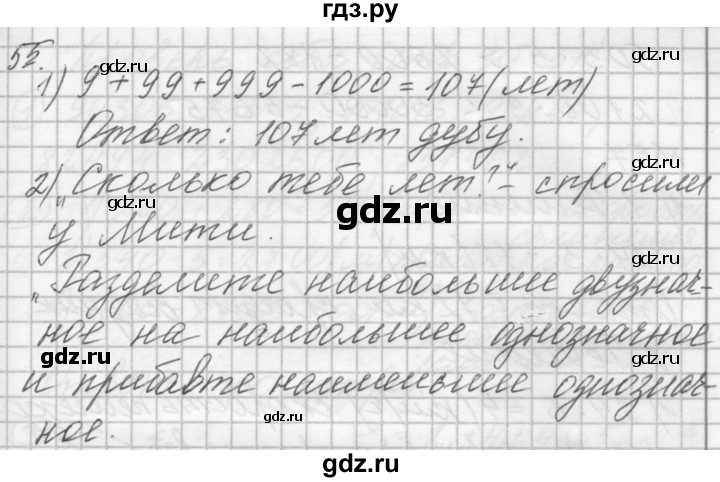 гдз.ру
55.
1) 9 + 99 + 999 - 1000 = 107 (лет)
Ответ: 107 лет дубу.
2) „Сколько тебе лет?“ - спросили
у Мити.
„Разделите наибольшее двузнач-
ное на наибольшее однозначное
и прибавте наименьшее однознач-
ное.
gdz.ru
gdz.ru
gdz.ru
gdz.ru
gdz.ru
gdz.ru
gdz.ru
gdz.ru
gdz.ru
gdz.ru
gdz.ru